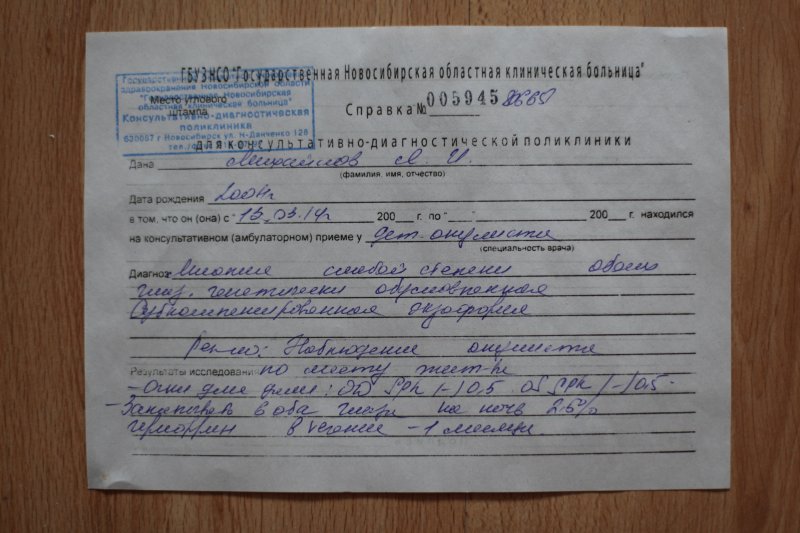 ГБУЗНСО "Государственная Новосибирская областная клиническая больница"
здравоохранения Новосибирской области
"Государственная Новосибирская
областная клиническая больница"
Консультативно-диагностическая
поликлиника
630087 г. Новосибирск ул. Н-Данченко 128
Место углового
штампа
Справка № 005945
для консультативно-диагностической поликлиники
Дана Михайлов И.
(фамилия, имя, отчество)
Дата рождения
в том, что он (она) с 13.03.14г 200 г. по " " 200 г. находился
на консультативном (амбулаторном) приеме у дет. окулиста
(специальность врача)
Диагноз: Миопия слабой степени обоих
глаз, генетически обусловленная
Субкомпенсированная экзофория
Реком: Наблюдение окулиста
Результаты исследований по месту жит-ва
- Очки для дали: OD Sph (-) 0,5 OS Sph (-) 0,5.
- Закапывать в оба глаза на ночь 2,5%
в течение - 1 месяца.